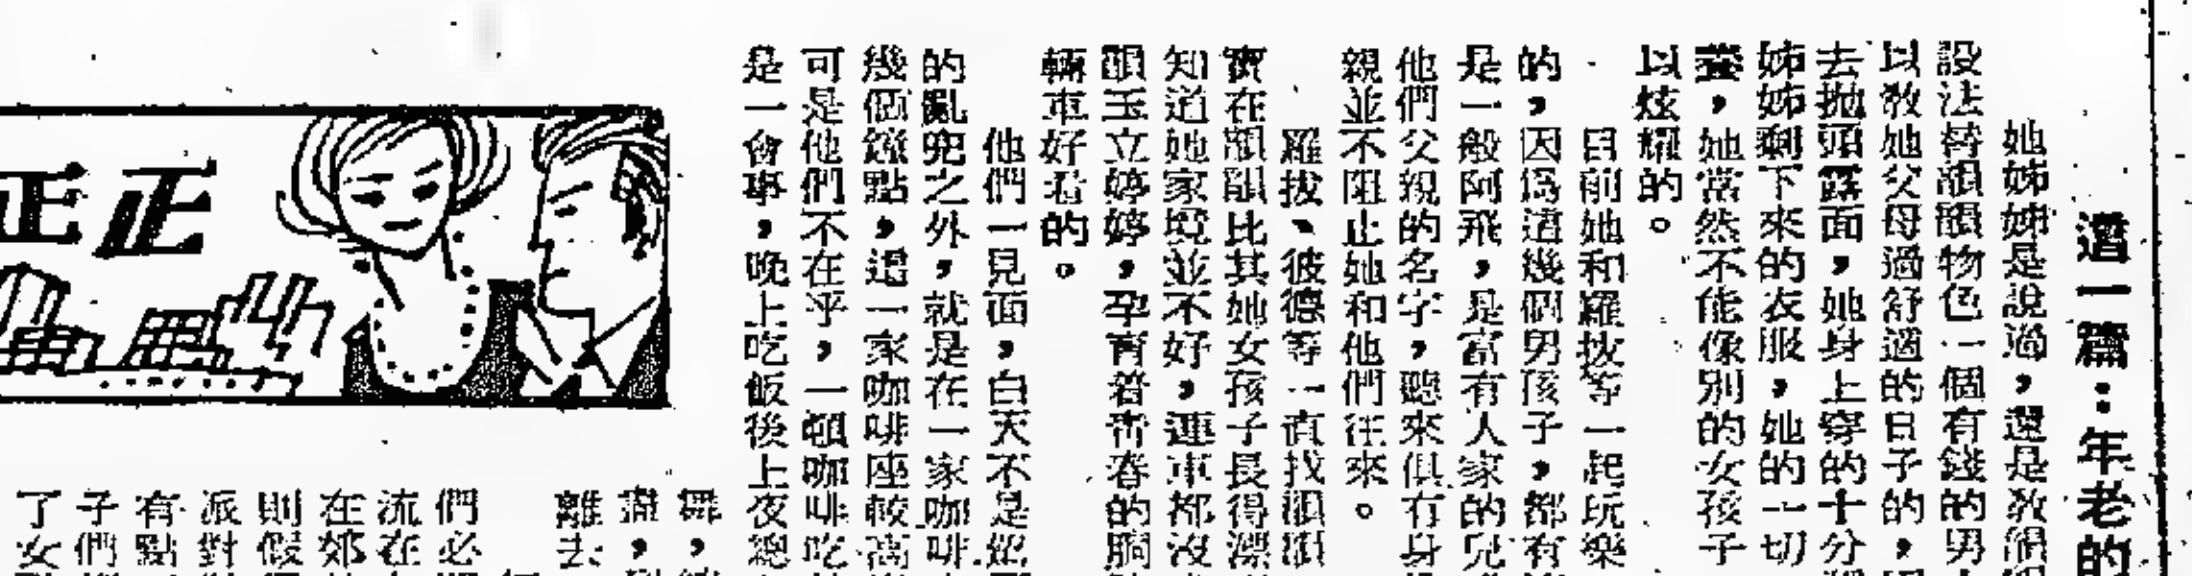 這一篇：年老的
她姊姊是說過，還是教韻
設法替韻韻物色一個有錢的男
以教她父母過舒適的日子的，
去拋頭露面，她身上穿的十分
姊姊剩下來的衣服，她的一切
，她當然不能像別的女孩子
以炫耀的。
目前她和羅拔等一起玩樂
的，因為這幾個男孩子，都有
是一般阿飛，是富有人家的兒
他們父親的名字，聽來俱有身
親並不阻止她和他們往來。
羅拔、彼德等一直找韻韻
實在韻韻比其她女孩子長得漂
知道她家境並不好，連車都沒
韻玉立婷婷，孕育着青春的胴
輛車好看的。
他們一見面，白天不是
的亂兜之外，就是在一家咖啡
幾個鐘點，這一家咖啡座較高
可是他們不在乎，一頓咖啡吃
是一會事，晚上吃飯後上夜總
正正
舞，
盡，
離去
們必
流在
在郊
則假
派對
有點
子們
了女